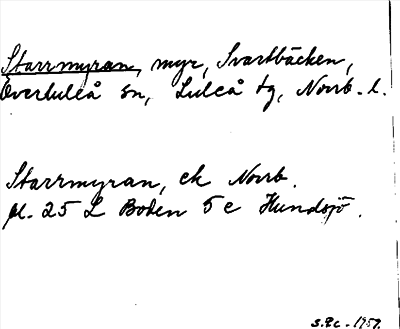 Starrmyran, myr, Svartbäcken,
Överluleå sn, Luleå tg, Norrb. l.
Starrmyran, ek Norrb.
bl. 25 L Boden 5 c Hundsjö.
S.P.c. 1959.